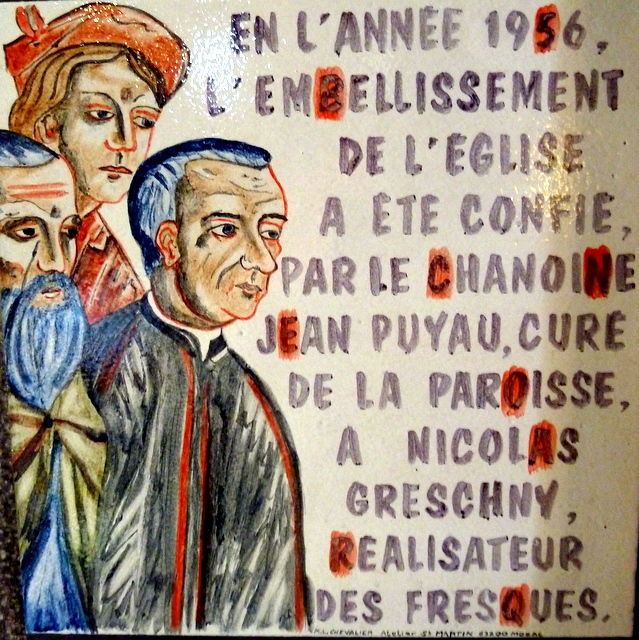 EN L'ANNÉE 1956,
L'EMBELLISSEMENT
DE L'ÉGLISE
A ÉTÉ CONFIÉ,
PAR LE CHANOINE
JEAN PUYAU, CURÉ
DE LA PAROISSE,
A NICOLAS
GRESCHNY,
REALISATEUR
DES FRESQUES.
M.L. CHEVALIER Atelier St MARTIN